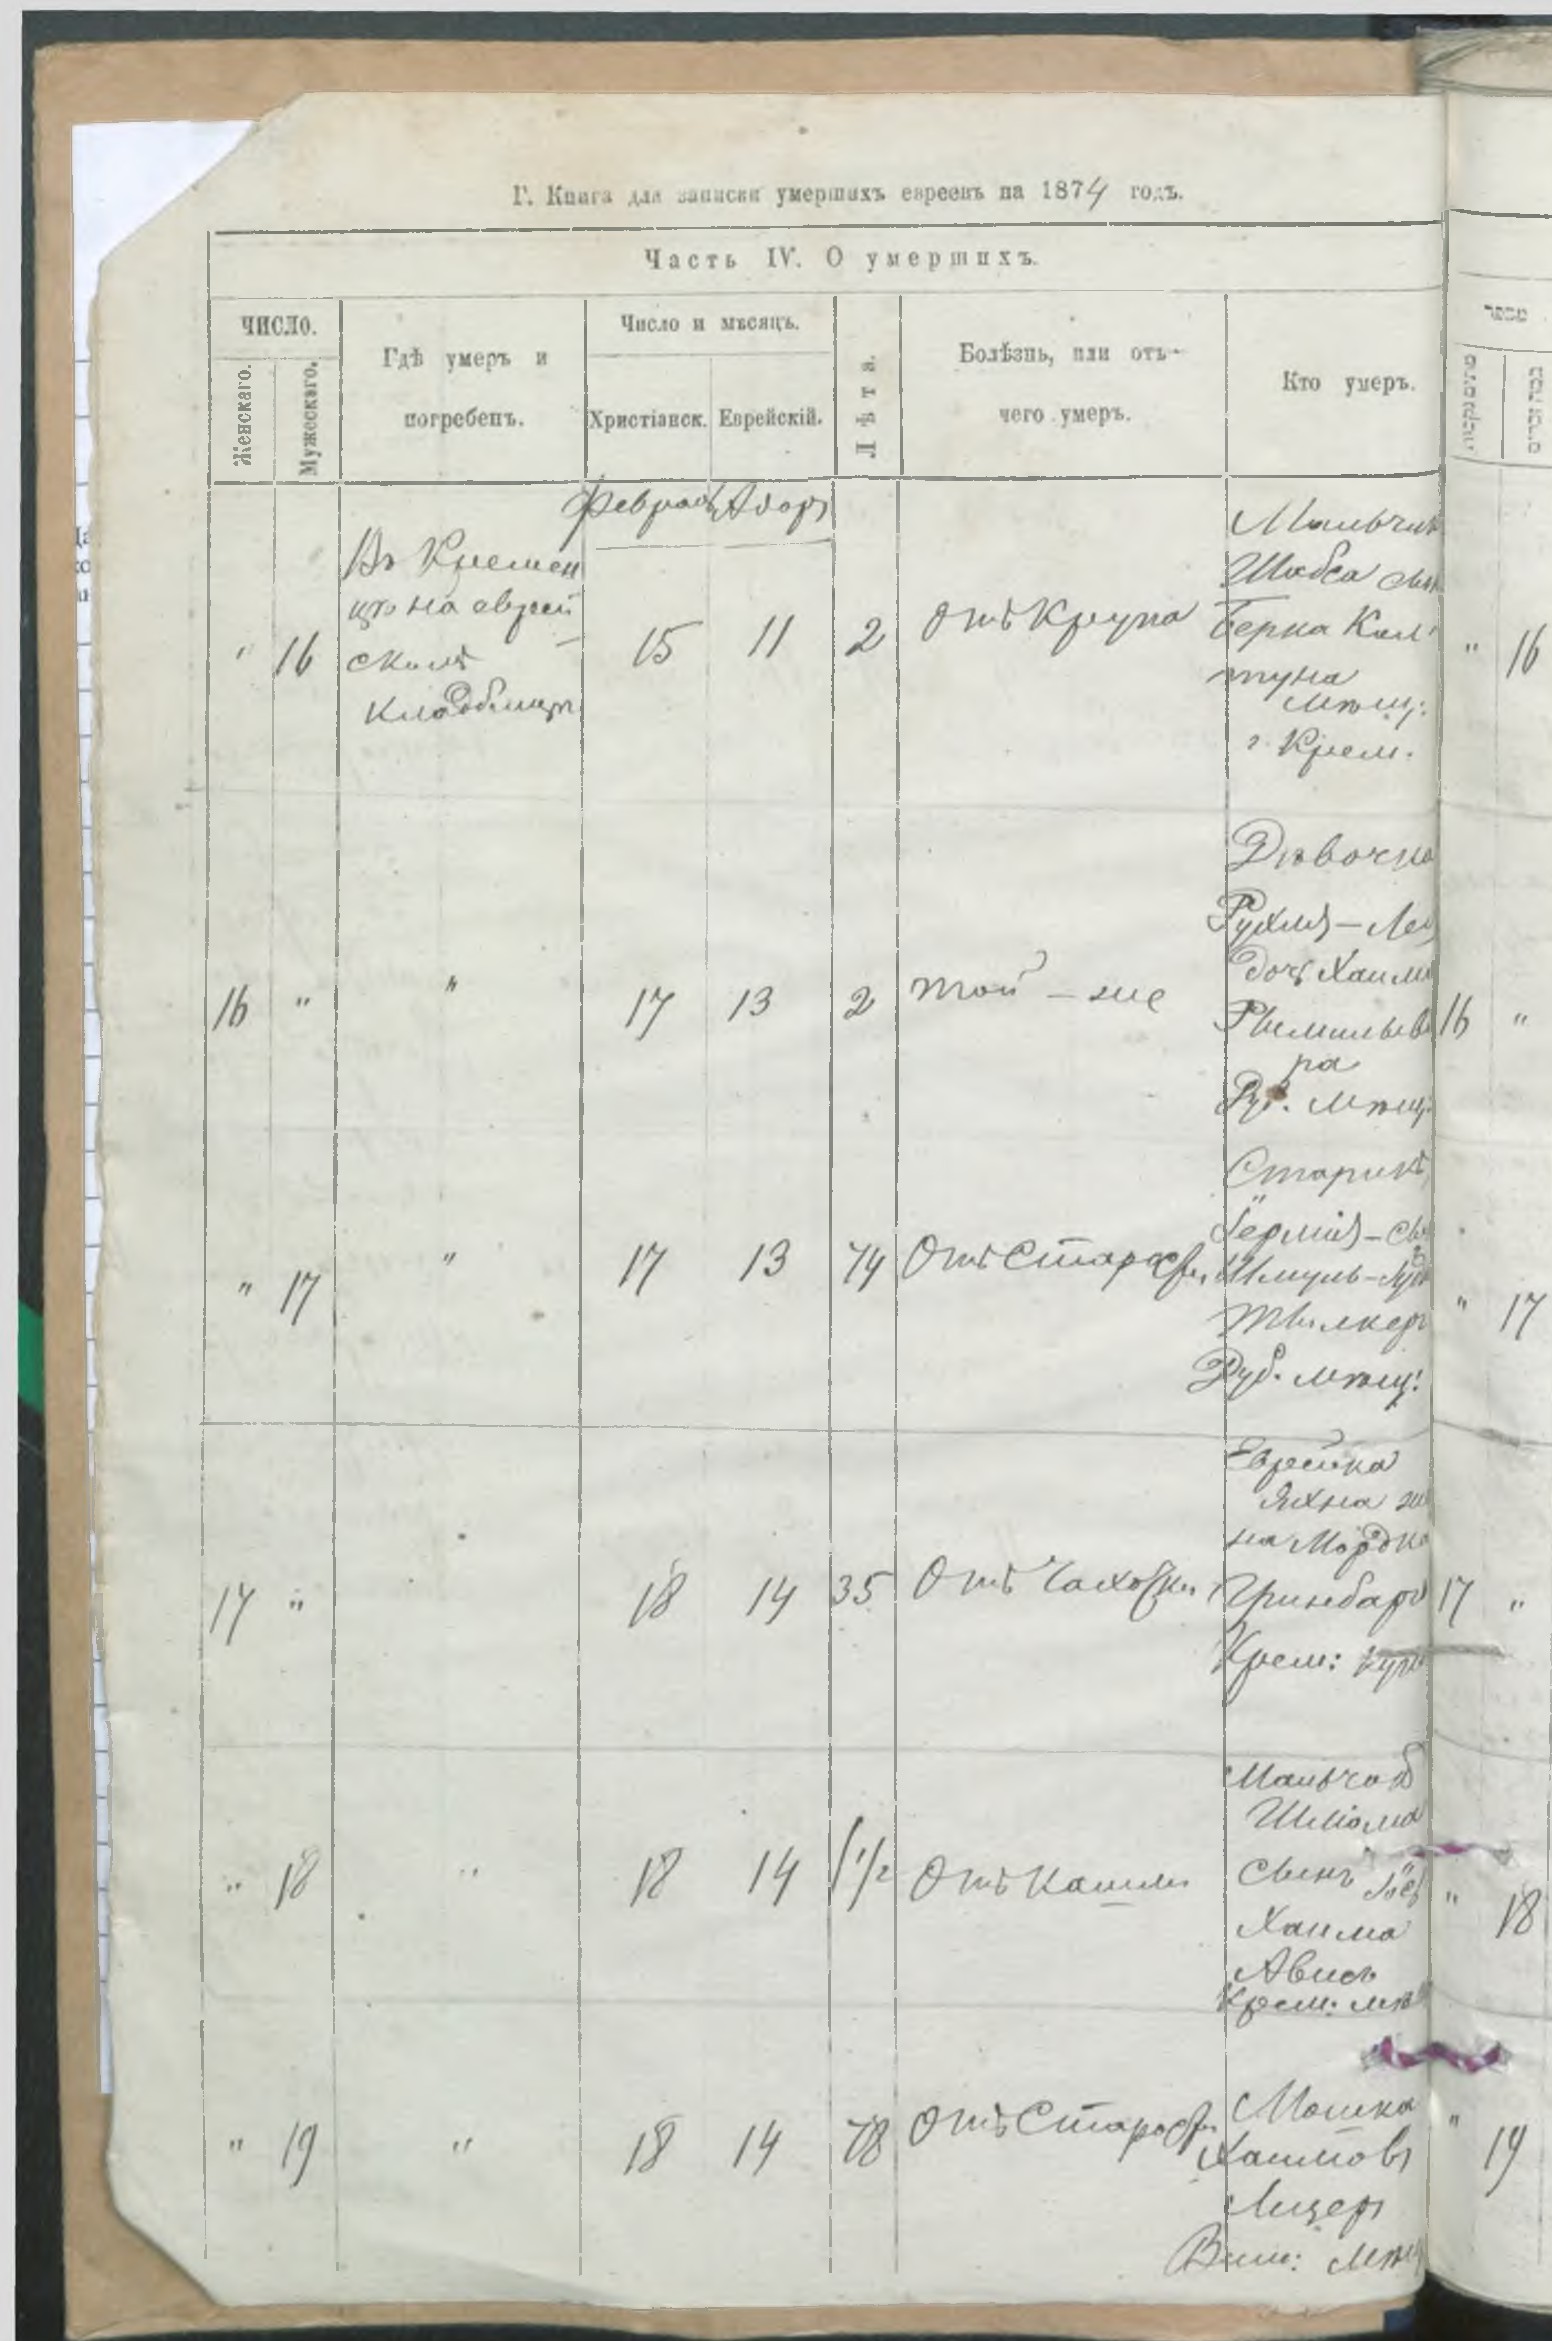 Г. Книга для записки умершихъ евреевъ на 1874 годъ.
Часть IV. О умершихъ.
ЧИСЛО.
Женскаго.
Мужескаго.
Гдѣ умеръ и
погребенъ.
Число и мѣсяцъ.
Христіанск.
Еврейскій.
Лѣта.
Болѣзнь, или отъ-
чего умеръ.
Кто умеръ.
Февраль Адаръ
" 16
Въ Кремен
цѣ на еврей
скомъ
кладбищѣ
15 11 2
Отъ Крупа
Мальчикъ
Шабса
Берка Кал
туна
мѣщ:
г. Крем.
" 16
16 " " 17 13 2
той - же
Дѣвочка
Рухля - Лея
дочь Хаима
ра
Руб. мѣщ:
16 "
" 17 " 17 13 74
Отъ Старости
Старикъ
Шмуль
Руб. мѣщ:
" 17
17 " 18 14 35
Отъ Чахотки
Еврейка
Яхна же
на Мордка
Гринбарг
Крем:
17 "
" 18 " 18 14 1/2
Отъ Кашля
Шлома
сынъ
Хаима
Авись
Крем: мѣщ
" 18
" 19 " 18 14 78
Отъ Старости
Мошка
Хаимовъ
Лицеръ
Виш: мѣщ
" 19